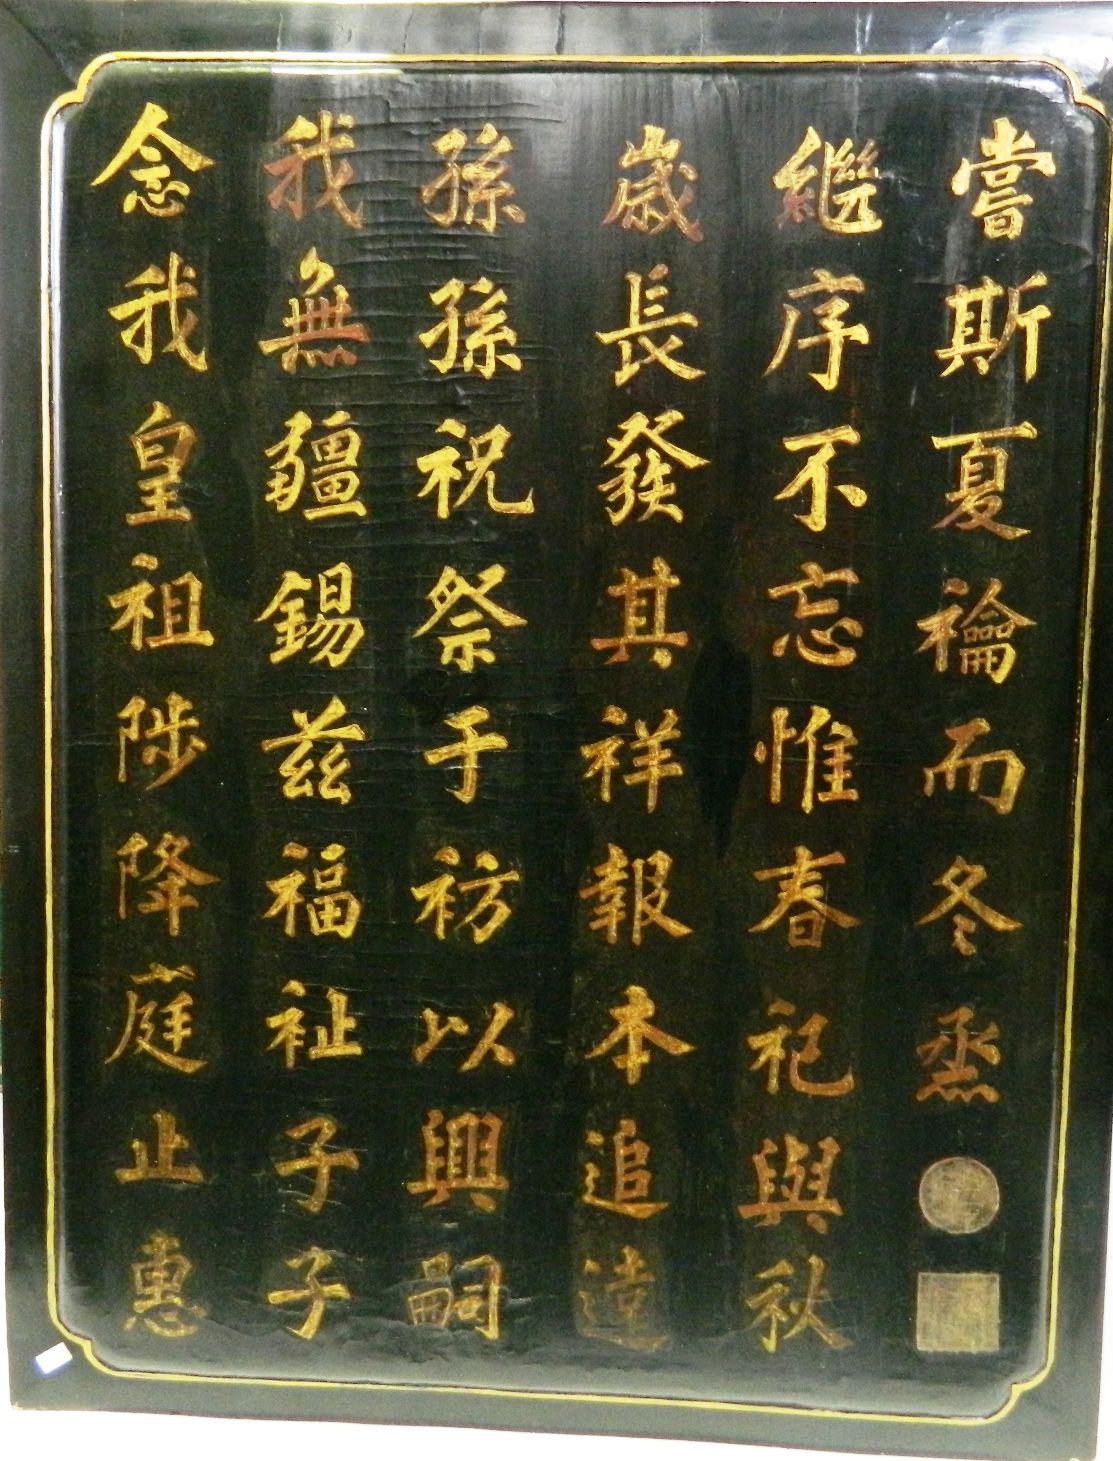 念我皇祖陟降庭止惠
我無疆錫茲福祉子子
孫孫祝祭于祊以興嗣
歲長發其祥報本追遠
繼序不忘惟春祀與秋
嘗斯夏禴而冬烝